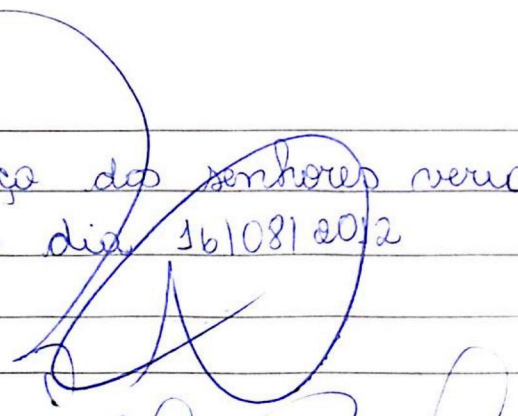 ço dos senhores verea
dia 16/08/2012